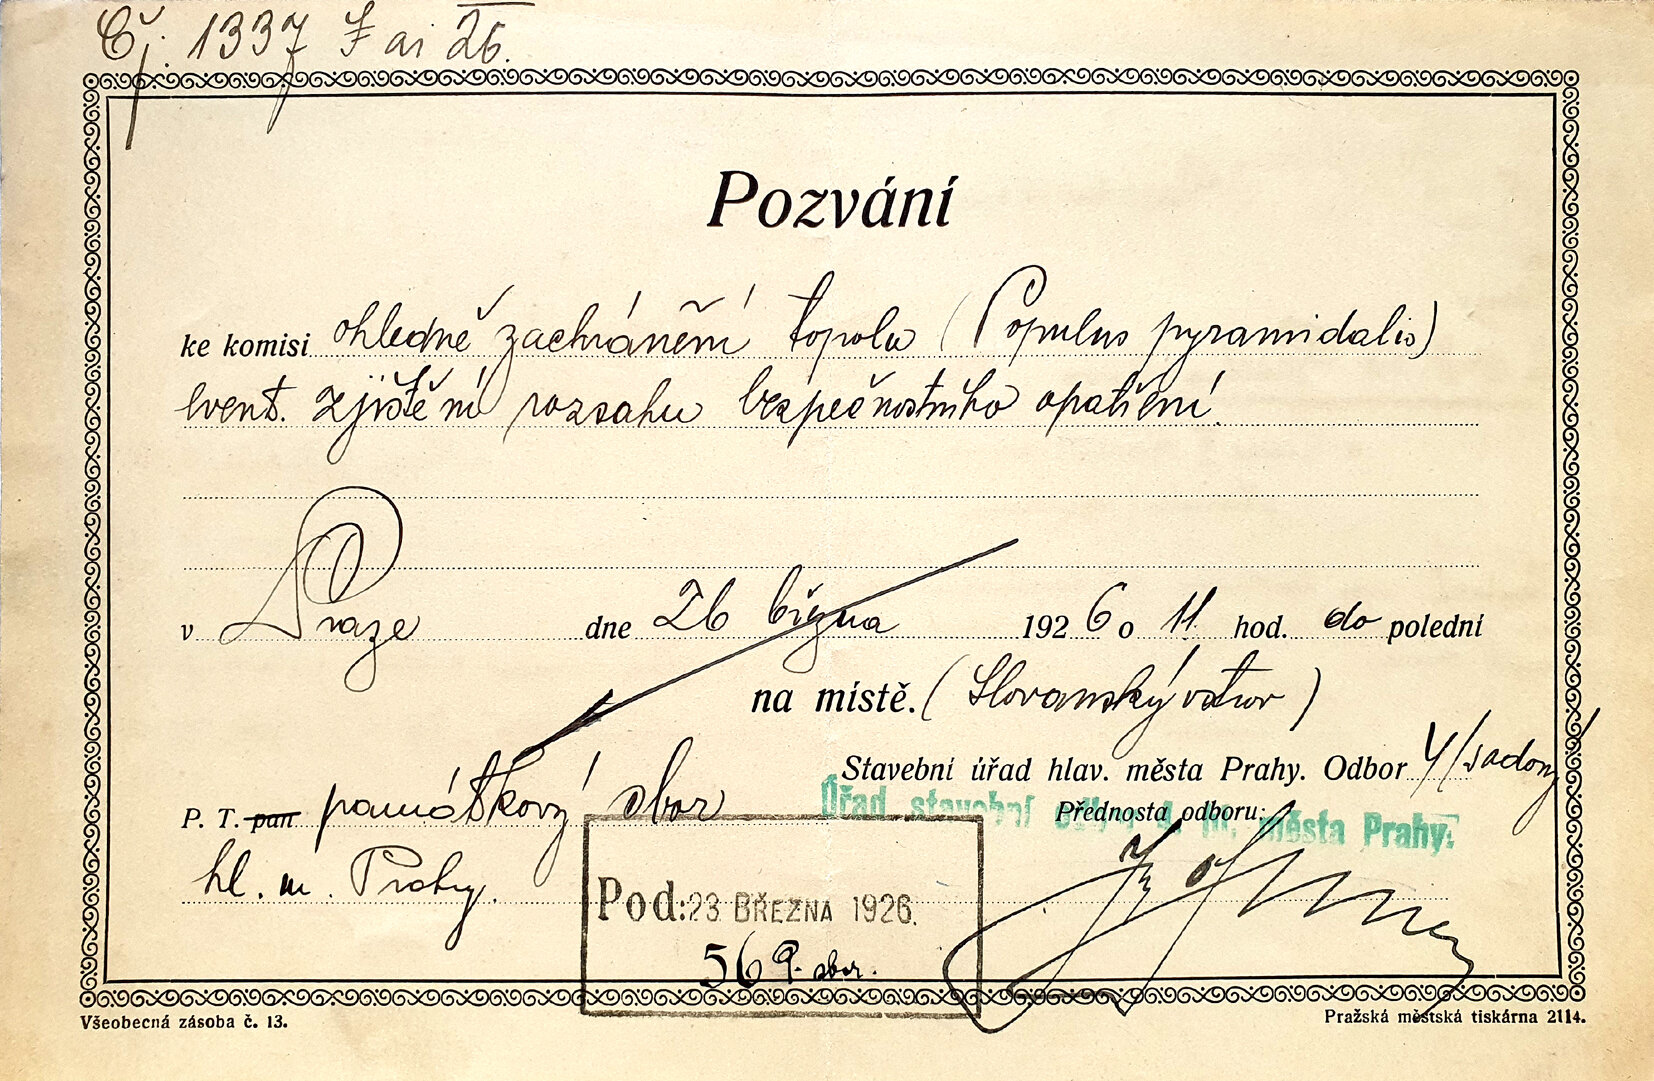 Čj. 1337 F ai 26.
Pozvání
ke komisi ohledně zachránění topolu (Populus pyramidalis)
event. zjištění rozsahu bezpečnostního opatření.
v Praze dne 26 března 1926 o 11 hod. do polední
na místě. (Slovanský ostrov)
Stavební úřad hlav. města Prahy. Odbor 4/sadový
Úřad stavební odbor 4. hl. města Prahy.
Přednosta odboru:
P. T. pan památkový sbor
hl. m. Prahy.
Pod: 23 BŘEZNA 1926.
569. sbor.
Všeobecná zásoba č. 13.
Pražská městská tiskárna 2114.